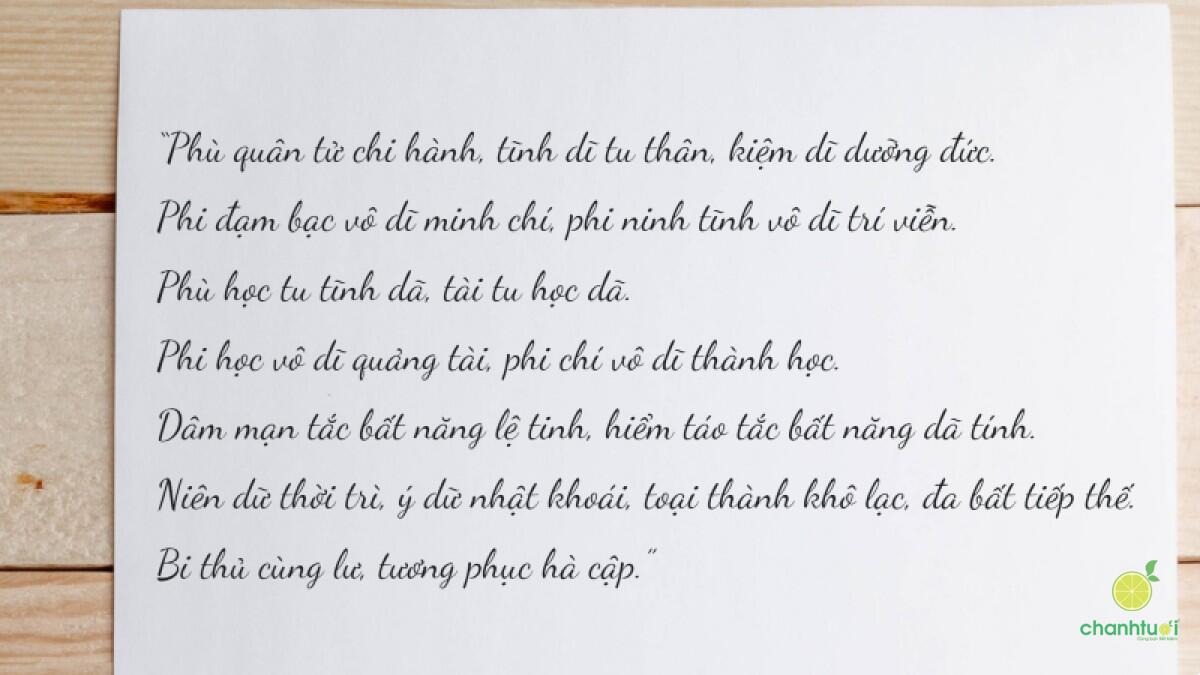 “Phù quân tử chi hành, tĩnh dĩ tu thân, kiệm dĩ dưỡng đức.
Phi đạm bạc vô dĩ minh chí, phi ninh tĩnh vô dĩ trí viễn.
Phù học tu tĩnh dã, tài tu học dã.
Phi học vô dĩ quảng tài, phi chí vô dĩ thành học.
Dâm mạn tắc bất năng lệ tinh, hiểm táo tắc bất năng dã tính.
Niên dữ thời trì, ý dữ nhật khoái, toại thành khô lạc, đa bất tiếp thế.
Bi thủ cùng lư, tương phục hà cập.”
chanhtươi